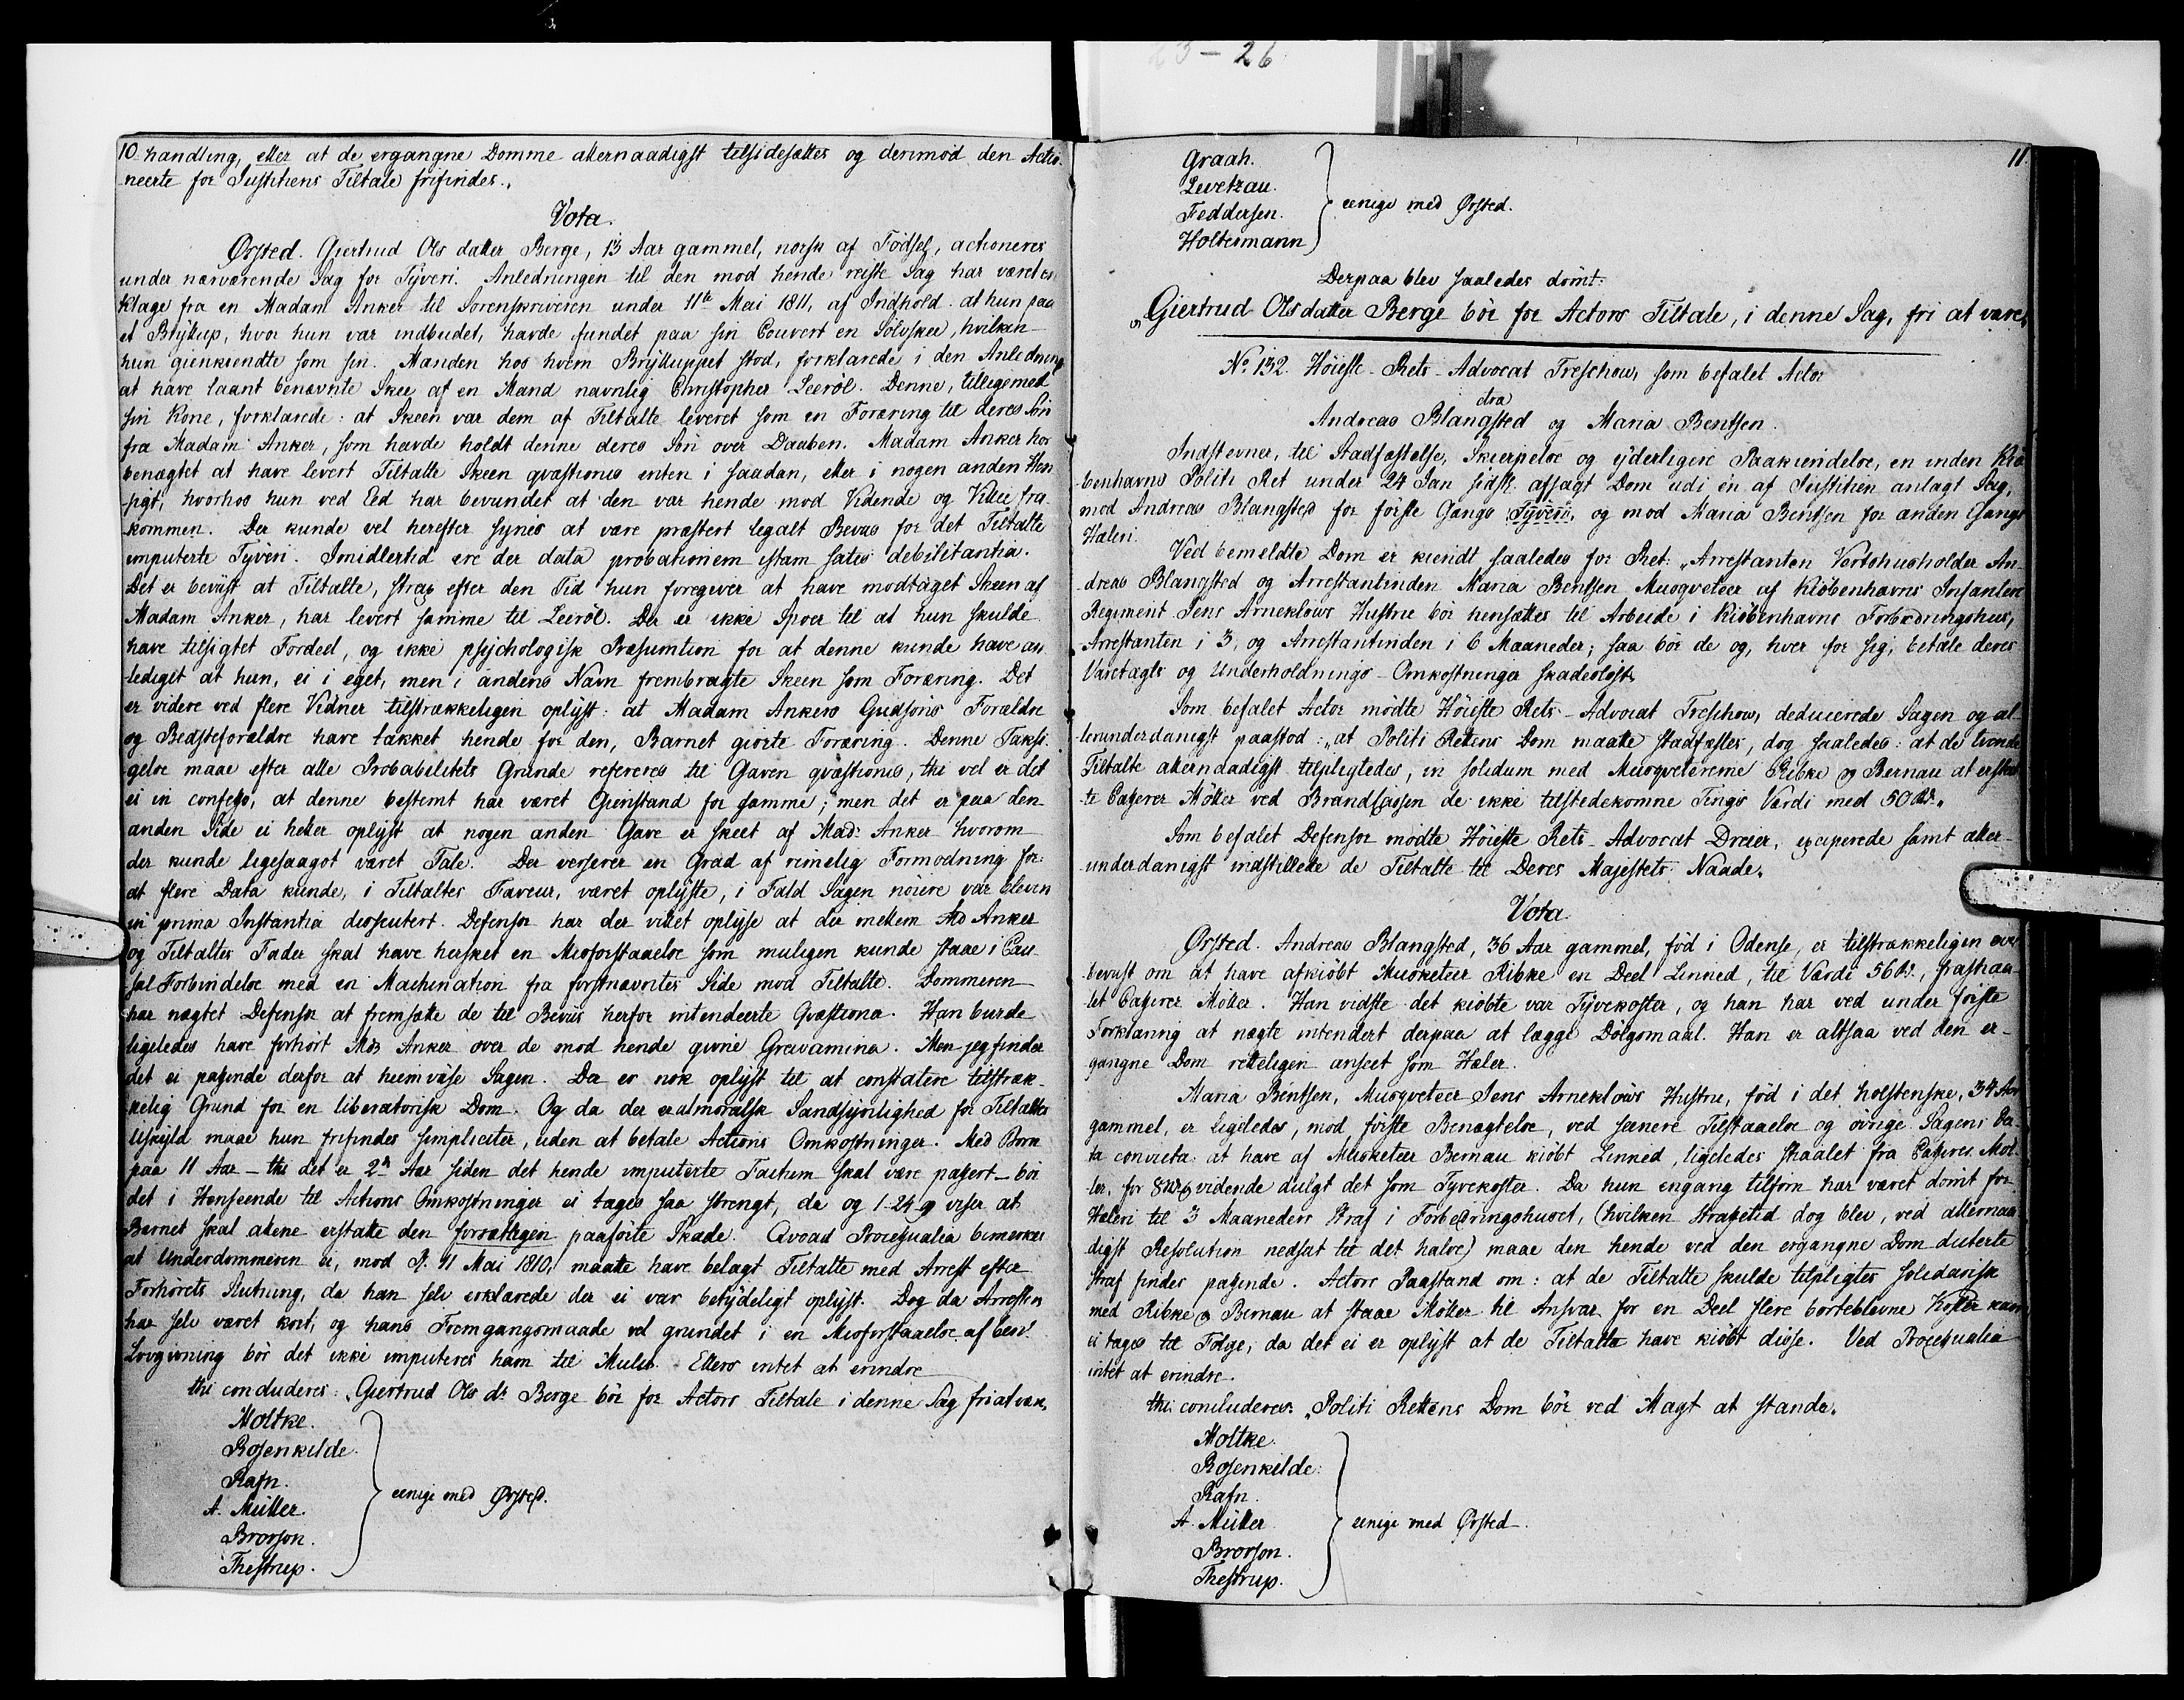 23-26
10 handling, eller at de ergangne Domme allernaadigst tilsidesættes og derimod den Actio-
neerte for Justitiens Tiltale frifindes.„
Vota.
Ørsted. Giertrud Ols datter Berge, 13 Aar gammel, norsk af Fødsel, actioneres
under nærværende Sag for Tyveri. Anledningen til den mod hende reiste Sag har været en
Klage fra en Madam Anker til Sorenskriveren under 11te Mai 1811, af Indhold: at hun paa
et Bryllup, hvor hun var indbudet, havde fundet paa sin Couvert en Sølvskee, hvilken
hun gienkiendte som sin. Manden hos hvem Brylluppet stod, forklarede i den Anledning
at have laant benævnte Skee af en Mand navnlig Christopher Leeröl. Denne, tilligemed
sin Kone, forklarede: at Skeen var dem af Tiltalte leveret som en Foræring til deres Søn
fra Madam Anker, som havde holdt denne deres Søn over Daaben. Madam Anker har
benægtet at have levert Tiltalte Skeen qvæstionis enten i saadan, eller i nogen anden Hen-
sigt, hvorhos hun ved Eed har bevundet at den var hende mod Vidende og Villie fra
kommen. Der kunde vel herefter synes at være præstert legalt Beviis for det Tiltalte
imputerte Tyveri. Imidlertid ere der data probationem istam satis debilitantia.
Det er beviist at Tiltalte, strax efter den Tid hun foregiver at have modtaget Skeen af
Madam Anker, har levert samme til Leeröl. Der er ikke Spoer til at hun skulde
have tilsigtet Fordeel, og ikke psychologisk Præsumtion for at denne kunde have an-
lediget at hun, ei i eget, men i andens Navn frembragte Skeen som Foræring. Det
er videre ved flere Vidner tilstrækkeligen oplyst: at Madam Ankers Gudsöns Forældre
og Bedsteforældre have takket hende for den, Barnet giorte Foræring. Denne Taksi-
gelse maae efter alle Probabilitets Grunde refereres til Gaven qvæstionis, thi vel er det
ei in confesso, at denne bestemt har været Gienstand for samme; men det er paa den
anden Side ei heller oplyst at nogen anden Gave er skeet af Mad: Anker hvorom
der kunde ligesaagot været Tale. Der verserer en Grad af rimelig Formodning for:
at flere Data kunde, i Tiltaltes Faveur, været oplyste, i Fald Sagen nöiere var bleven
in prima Instantia discuteret. Defensor har der villet oplyse at der mellem Md Anker
og Tiltaltes Fader skal have hersket en Misforstaaelse som muligen kunde staae i Cau-
sal Forbindelse med en Machination fra forstnævntes Side mod Tiltalte. Dommeren
har nægtet Defensor at fremsætte de til Beviis herfor intendeerte Qvæstiona. Han burde
ligeledes have forhört Md Anker over de mod hende givne Gravamina. Men jeg finder
det ei passende derfor at hiemviise Sagen. Da er nok oplyst til at constatere tilstræk-
kelig Grund for en liberatorisk Dom. Og da der er al moralsk Sandsynlighed for Tiltaltes
Uskyld maae hun frifindes simpliciter, uden at betale Actions Omkostninger. Med Barn
paa 11 Aar - thi det er 2de Aar siden det hende imputerte Factum skal være passert - bör
det i Henseende til Actions Omkostninger ei tages saa strengt, da og 1-24-9 viser at
Barnet skal alene erstatte den forsættligen paaförte Skade. Qvoad Processualia bemerkes
at Underdommeren ei, mod Pl. 11 Mai 1810, maatte have belagt Tiltalte med Arrest efter
Forhörets Slutning, da han selv erklærede der ei var betydeligt oplyst. Dog da Arresten
har selv været kort, og hans Fremgangsmaade vel grundet i en Misforstaaelse af ben.
Lovgivning bör det ikke imputeres ham til Mulct. Ellers intet at erindre
thi concluderes: „Giertrud Ols dr Berge bör for Actors Tiltale i denne Sag fri at være„
Moltke.
Rosenkilde.
Rafn.
A. Müller.
Brorson.
Thestrup.
eenige med Ørsted.
11.
Graah.
Levetzau.
Feddersen.
Holtermann
eenige med Ørsted.
Derpaa blev saaledes dömt:
„Giertrud Olsdatter Berge bör for Actors Tiltale, i denne Sag, fri at være„
No. 132. Höieste-Rets-Advocat Treschow, som befalet Actor
ctra
Andreas Blangsted og Maria Bentsen.
Indstevner, til Stadfæstelse, Skierpelse og yderligere Paakiendelse, en inden Kiö-
benhavns Politi Ret under 24 Jan sidstl. afsagt Dom udi en af Justitien anlagt Sag,
mod Andreas Blangsted for förste Gangs Tyveri, og mod Maria Bentsen for anden Gangs
Hæleri.
Ved bemeldte Dom er kiendt saaledes for Ret: „Arrestanten Vertshusholder An-
dreas Blangsted og Arrestantinden Maria Bentsen Musqveteer af Kiöbenhavns Infanterie
Regiment Jens Arneklows Hustrue bör hensættes til Arbeide i Kiöbenhavns Forbedringshus,
Arrestanten i 3, og Arrestantinden i 6 Maaneder; saa bör de og, hver for sig, betale deres
Varetægts og Underholdnings-Omkostninger skadeslöst„
Som befalet Actor mödte Höieste Rets-Advocat Treschow, deducerede Sagen og al-
lerunderdanigst paastod: „at Politi Rettens Dom maatte stadfæstes, dog saaledes: at de tvende
Tiltalte allernaadigst tilpligtedes, in solidum med Musqvetererne Ribke og Bernau at erstat-
te Casserer Möller ved Brandcassen de ikke tilstedekomne Tings Værdi med 50 Rd.„
Som befalet Defensor mödte Höieste Rets-Advocat Dreier, exciperede samt aller-
underdanigst indstillede de Tiltalte til Deres Majestets Naade.
Vota
Ørsted. Andreas Blangsted, 36 Aar gammel, föd i Odense, er tilstrækkeligen over-
beviist om at have afkiöbt Musketeer Ribke en Deel Linned, til Værdi 56 Rd., frastiaa-
let Casserer Möller. Han vidste det kiöbte var Tyvekoster, og han har ved under förste
Forklaring at nægte intendert derpaa at lægge Dölgsmaal. Han er altsaa ved den er-
gangne Dom retteligen anseet som Hæler.
Maria Bentsen, Musqveteer Jens Arneklows Hustru, föd i det holstenske, 34 Aar
gammel, er ligeledes, mod förste Benægtelse, ved senere Tilstaaelse og övrige Sagens Da-
ta convicta: at have af Musketeer Bernau kiöbt Linned, ligeledes stiaalet fra Casserer Möl-
ler, for 8 vidende dulgt det som Tyvekoster. Da hun engang tilforn har været dömt for
Hæleri til 3 Maaneders Straf i Forbedringshuset, (hvilken Strafetid dog blev, ved allernaa-
digst Resolution nedsat til det halve) maae den hende ved den ergangne Dom dicterte
Straf findes passende. Actors Paastand om: at de Tiltalte skulde tilpligtes solidarisk
med Ribke og Bernau at staae Möller til Ansvar for en Deel flere borteblevne Koster kan
ei tages til Fölge, da det ei er oplyst at de Tiltalte have kiöbt disse. Ved Processualia
intet at erindre.
thi concluderes: „Politi Rettens Dom bör ved Magt at stande„
Moltke.
Rosenkilde.
Rafn.
A. Müller
Brorson.
Thestrup.
eenige med Ørsted.